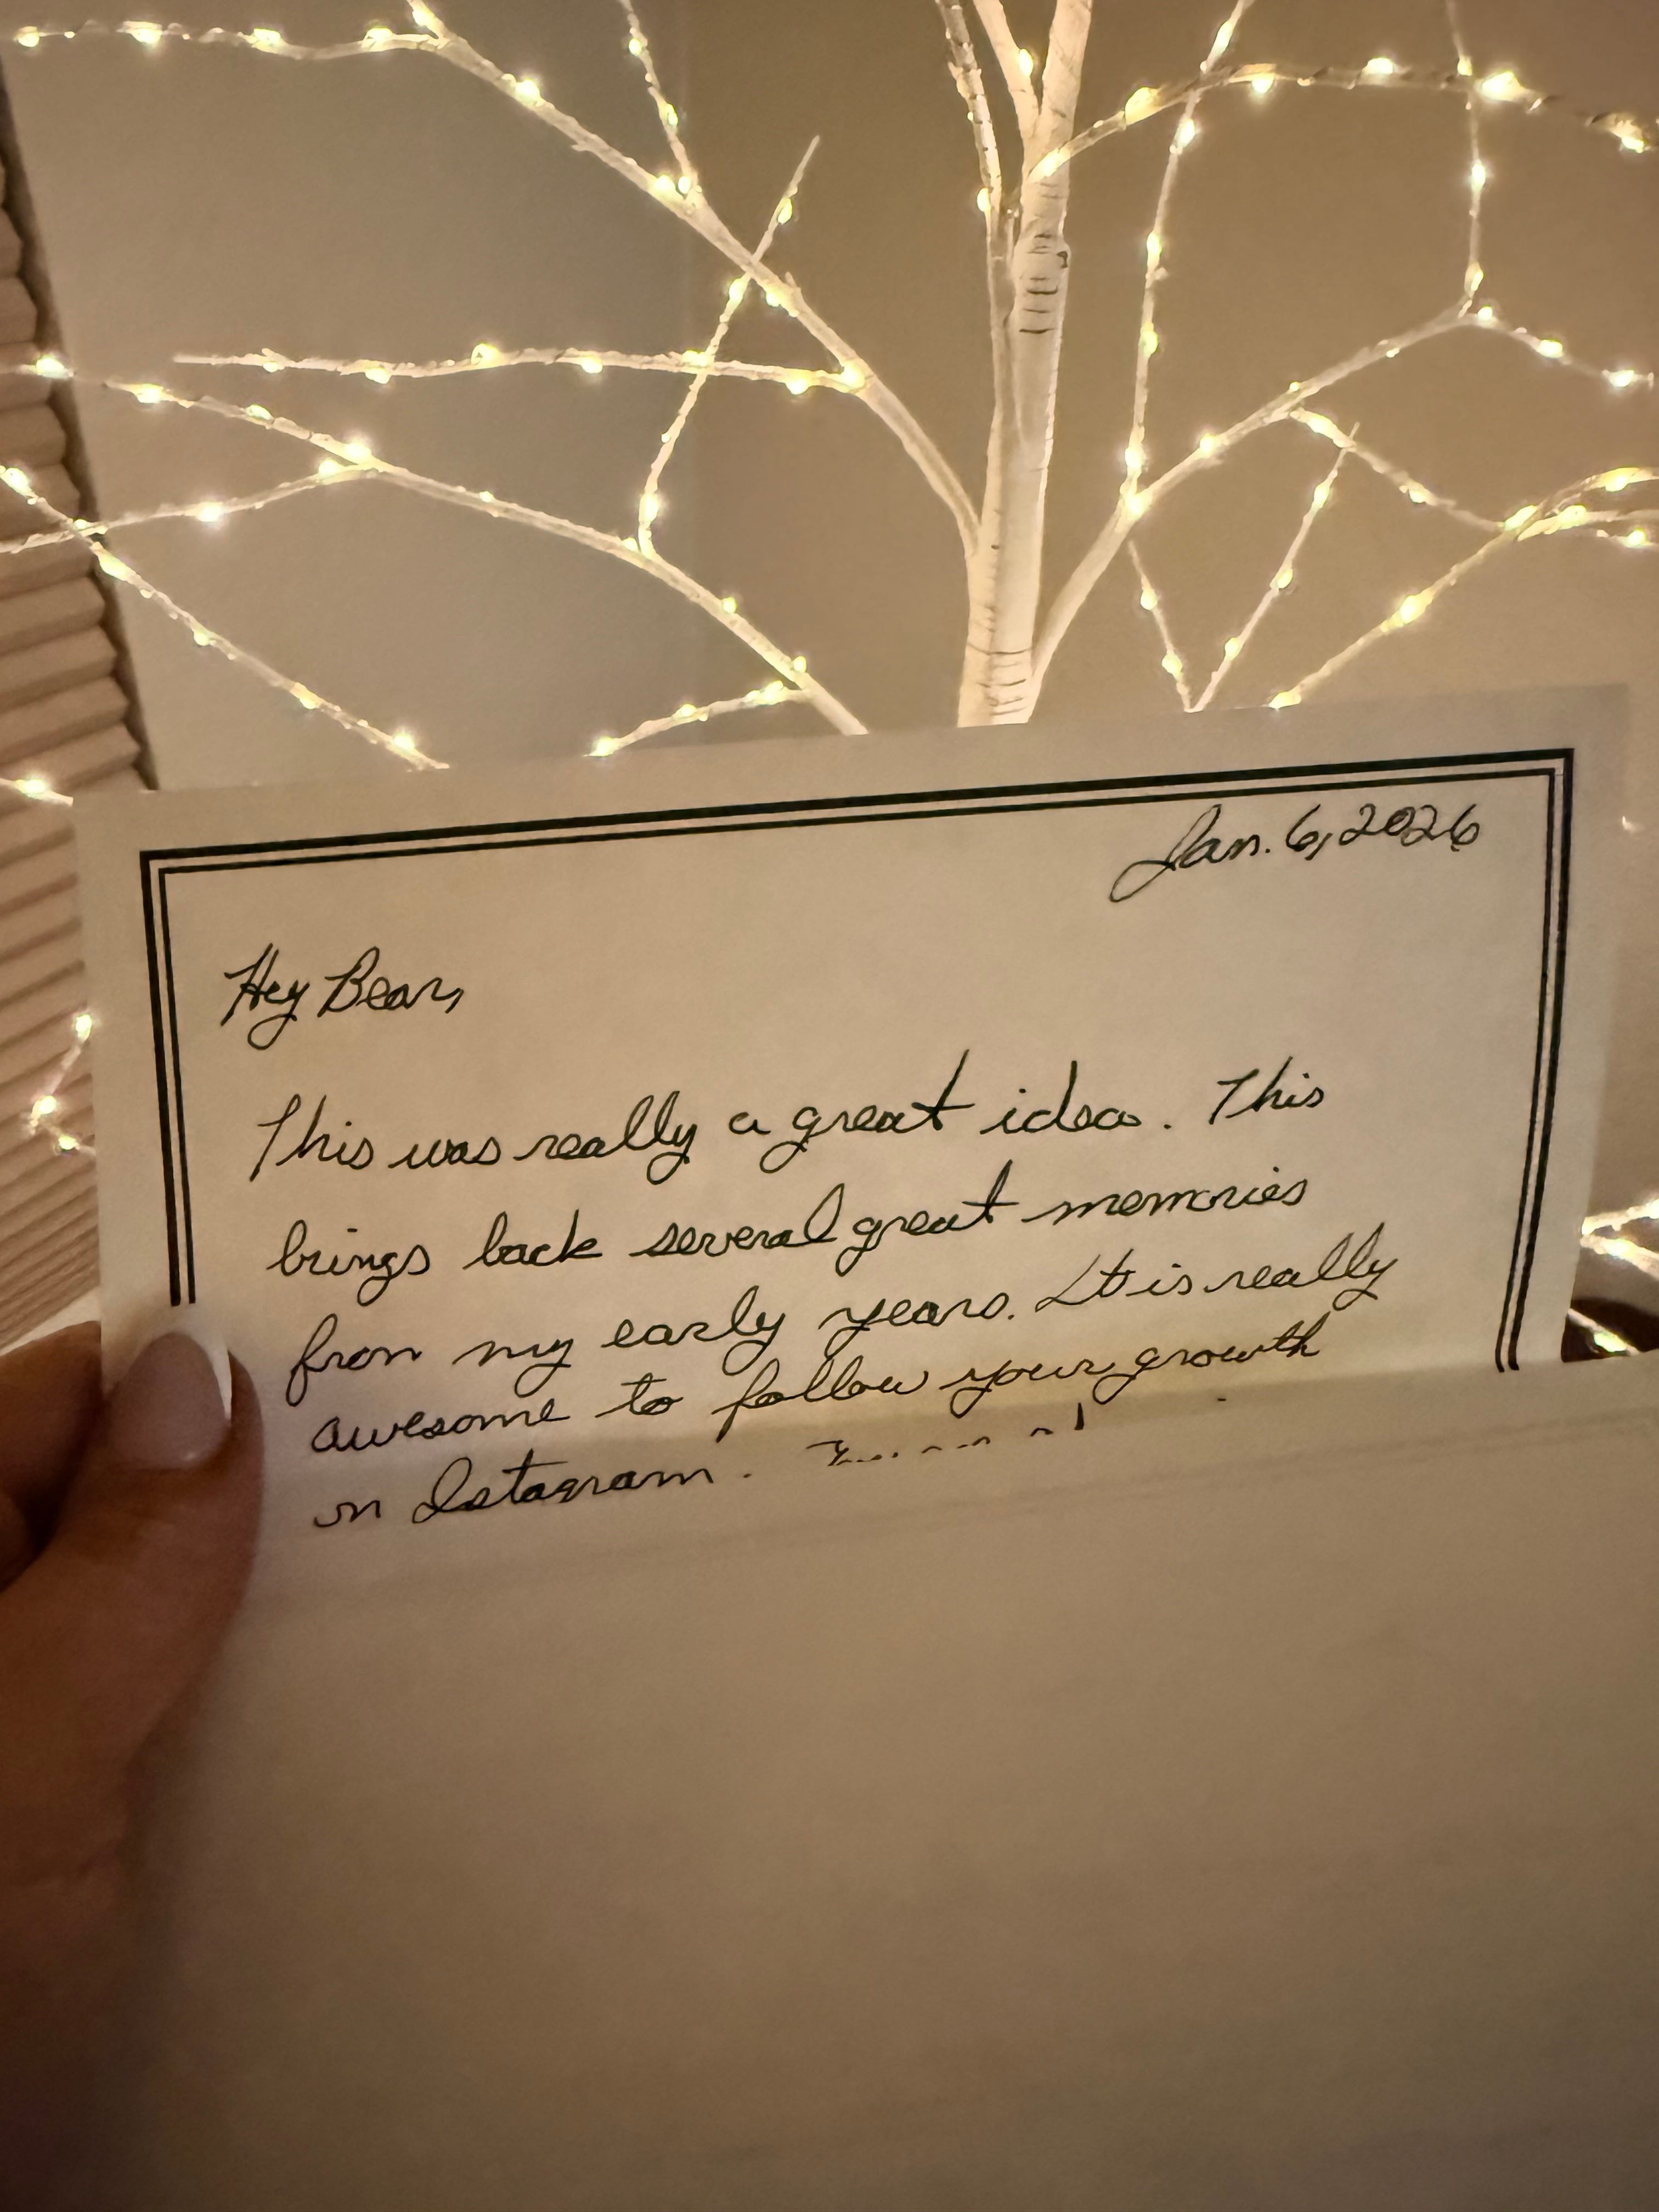 Jan. 6, 2026
Hey Bear,
This was really a great idea. This
brings back several great memories
from my early years. It is really
awesome to follow your growth
on Istagram.